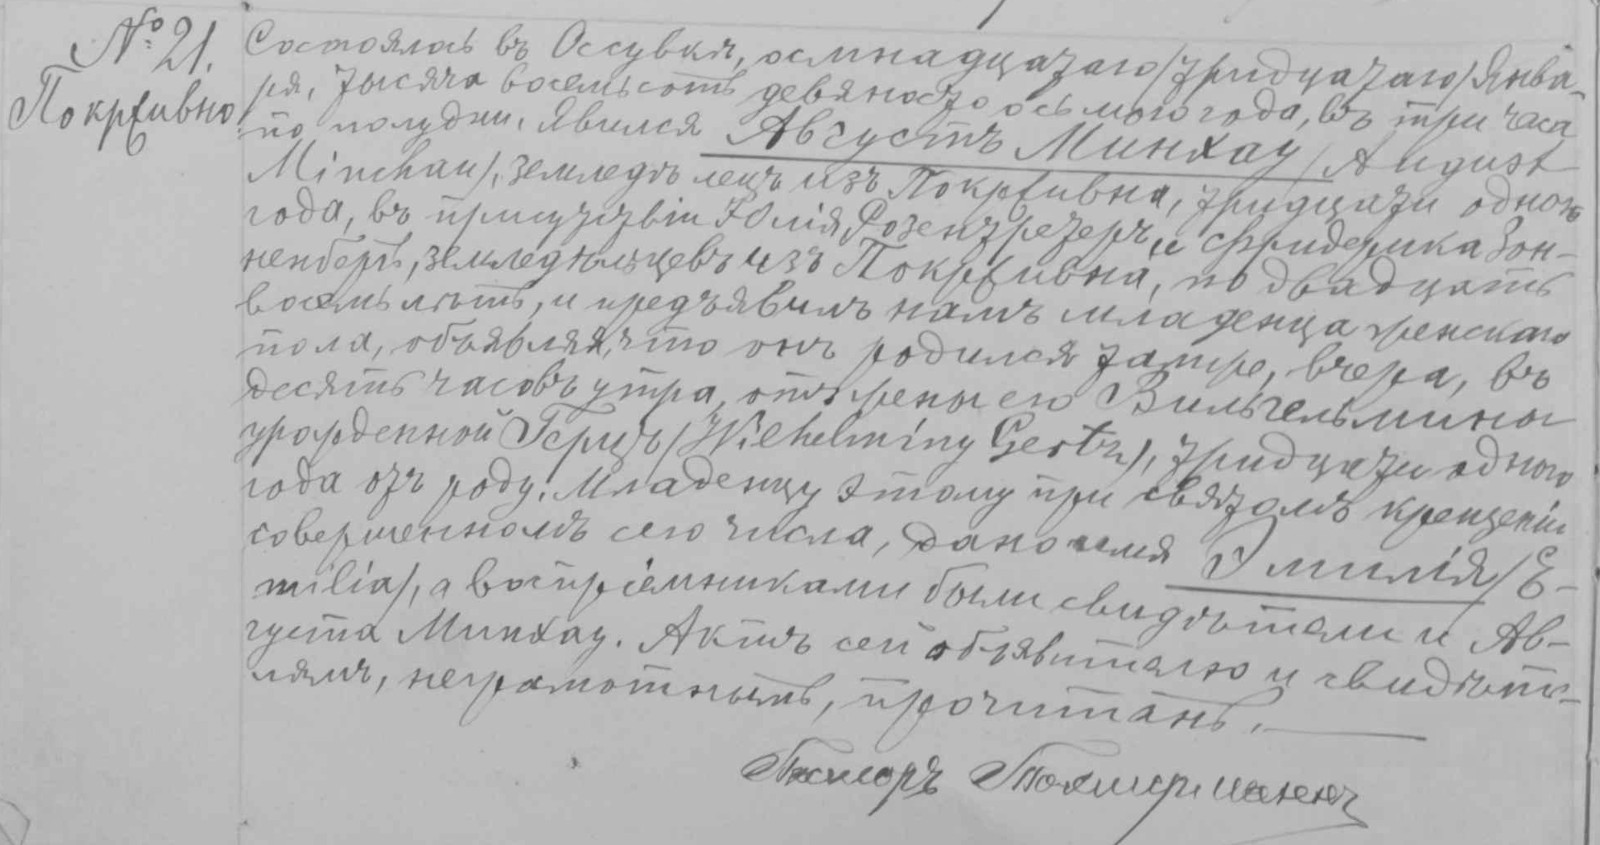 № 21.
Покрживно
Состоялось въ Оссувкѣ, осмнадцатаго /тридцатаго/ Янва-
ря, тысяча восемьсотъ девяносто осьмого года, въ три часа
по полудни. Явился Августъ Минхау /August
Minchau/, земледѣлецъ изъ Покрживна, тридцати одного
года, въ присутствіи Юлія Розентретеръ и Фридерика Зон-
ненбергъ, земледѣльцевъ изъ Покрживна, по двадцать
восемь лѣтъ, и предъявилъ намъ младенца женскаго
пола, объявляя, что онъ родился тамже, вчера, въ
десять часовъ утра, отъ жены его Вильгельмины
урожденной Герцъ /Wilhelminy Gertz/, тридцати одного
года отъ роду. Младенцу этому при святомъ крещеніи
совершенномъ сего числа, дано имя Эмилія /E-
milia/, а воспріемниками были свидѣтели и Ав-
густа Минхау. Актъ сей объявителю и свидѣте-
лямъ, неграмотнымъ, прочитанъ.
Пасторъ